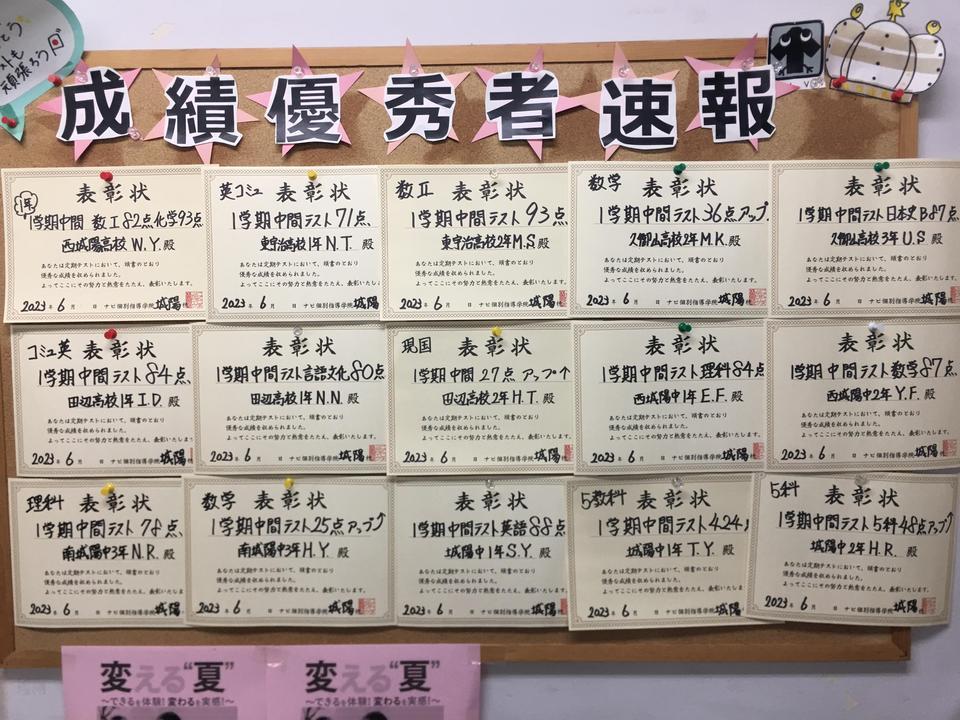 も
頑張ろう
成績優秀者速報
1年
表彰状
1学期中間 数Ⅰ82点化学93点
西城陽高校 W.Y. 殿
あなたは定期テストにおいて、頭書のとおり
優秀な成績を収められました。
よってここにその努力と熱意をたたえ、表彰いたします。
2023年 6月 日 ナビ個別指導学院 城陽
英コミュ 表彰状
1学期中間テスト 71点
東宇治高校1年 N.T. 殿
あなたは定期テストにおいて、頭書のとおり
優秀な成績を収められました。
よってここにその努力と熱意をたたえ、表彰いたします
2023年 6月 日 ナビ個別指導学院 城陽
数Ⅱ 表彰状
1学期中間テスト 93点
東宇治高校2年 M.S. 殿
あなたは定期テストにおいて、頭書のとおり
優秀な成績を収められました。
よってここにその努力と熱意をたたえ、表彰いたします
2023年 6月 日 ナビ個別指導学院 城陽
数学 表彰状
1学期中間テスト 36点アップ.
久御山高校2年 M.K. 殿
あなたは定期テストにおいて、頭書のとおり
優秀な成績を収められました。
よってここにその努力と熱意をたたえ、表彰いたします。
2023年 6月 日 ナビ個別指導学院 城陽
表彰状
1学期中間テスト 日本史B87点
久御山高校3年 U.S 殿
あなたは定期テストにおいて、頭書のとおり
優秀な成績を収められました。
よってここにその努力と熱意をたたえ、表彰いたします。
2023年 6月 日 ナビ個別指導学院 城陽
コミュ英 表彰状
1学期中間テスト 84点
田辺高校1年 I.D. 殿
あなたは定期テストにおいて、頭書のとおり
優秀な成績を収められました。
よってここにその努力と熱意をたたえ、表彰いたしま
2023年 6月 日 ナビ個別指導学院 城陽
表彰状
1学期中間テスト言語文化80点
田辺高校1年 N.N. 殿
あなたは定期テストにおいて、頭書のとおり
優秀な成績を収められました。
よってここにその努力と熱意をたたえ、表彰いたします
2023年 6月 日 ナビ個別指導学院 城陽
現国 表彰状
1学期中間 27点 アップ↑
田辺高校2年 H.T. 殿
あなたは定期テストにおいて、頭書のとおり
優秀な成績を収められました。
よってここにその努力と熱意をたたえ、表彰いたしま
2023年 6月 日 ナビ個別指導学院 城陽
表彰状
1学期中間テスト 理科84点
西城陽中1年 E.F. 殿
あなたは定期テストにおいて、頭書のとおり
優秀な成績を収められました。
よってここにその努力と熱意をたたえ、表彰いたします
2023年 6月 日 ナビ個別指導学院 城陽
表彰状
1学期中間テスト 数学87点
西城陽中2年 Y.F. 殿
あなたは定期テストにおいて、頭書のとおり
優秀な成績を収められました。
よってここにその努力と熱意をたたえ、表彰いたします。
2023年 6月 日 ナビ個別指導学院 城陽
理科 表彰状
1学期中間テスト 78点
南城陽中3年 N.R. 殿
あなたは定期テストにおいて、頭書のとおり
優秀な成績を収められました。
よってここにその努力と熱意をたたえ、表彰いたしま
2023年 6月 日 ナビ個別指導学院 城陽
数学 表彰状
1学期中間テスト 25点アップ↑
南城陽中3年 H.Y. 殿
あなたは定期テストにおいて、頭書のとおり
優秀な成績を収められました。
よってここにその努力と熱意をたたえ、表彰いたします。
2023年 6月 日 ナビ個別指導学院 城陽
表彰状
1学期中間テスト英語88点
城陽中1年 S.Y. 殿
あなたは定期テストにおいて、頭書のとおり
優秀な成績を収められました。
よってここにその努力と熱意をたたえ、表彰いたしま
2023年 6月 日 ナビ個別指導学院 城陽
5教科 表彰状
1学期中間テスト 424
城陽中1年 T.Y. 殿
あなたは定期テストにおいて、頭書のとおり
優秀な成績を収められました。
よってここにその努力と熱意をたたえ、表彰いたしま
2023年 6月 日 ナビ個別指導学院 城陽
5科 表彰状
1学期中間テスト 5科48点アップ↑
城陽中2年 H.R. 殿
あなたは定期テストにおいて、頭書のとおり
優秀な成績を収められました。
よってここにその努力と熱意をたたえ、表彰いたします。
2023年 6月 日 ナビ個別指導学院 城陽
変える“夏”
～できるを体験! 変わるを実感!～
変える“夏”
～できるを体験! 変わるを実感!～